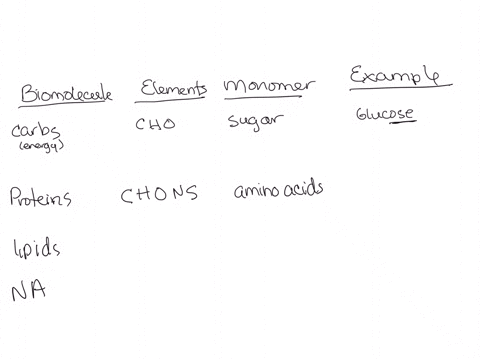 Biomolecule Elements Monomer Example
Carbs CHO Sugar Glucose
(energy)
Proteins CHONS amino acids
lipids
NA